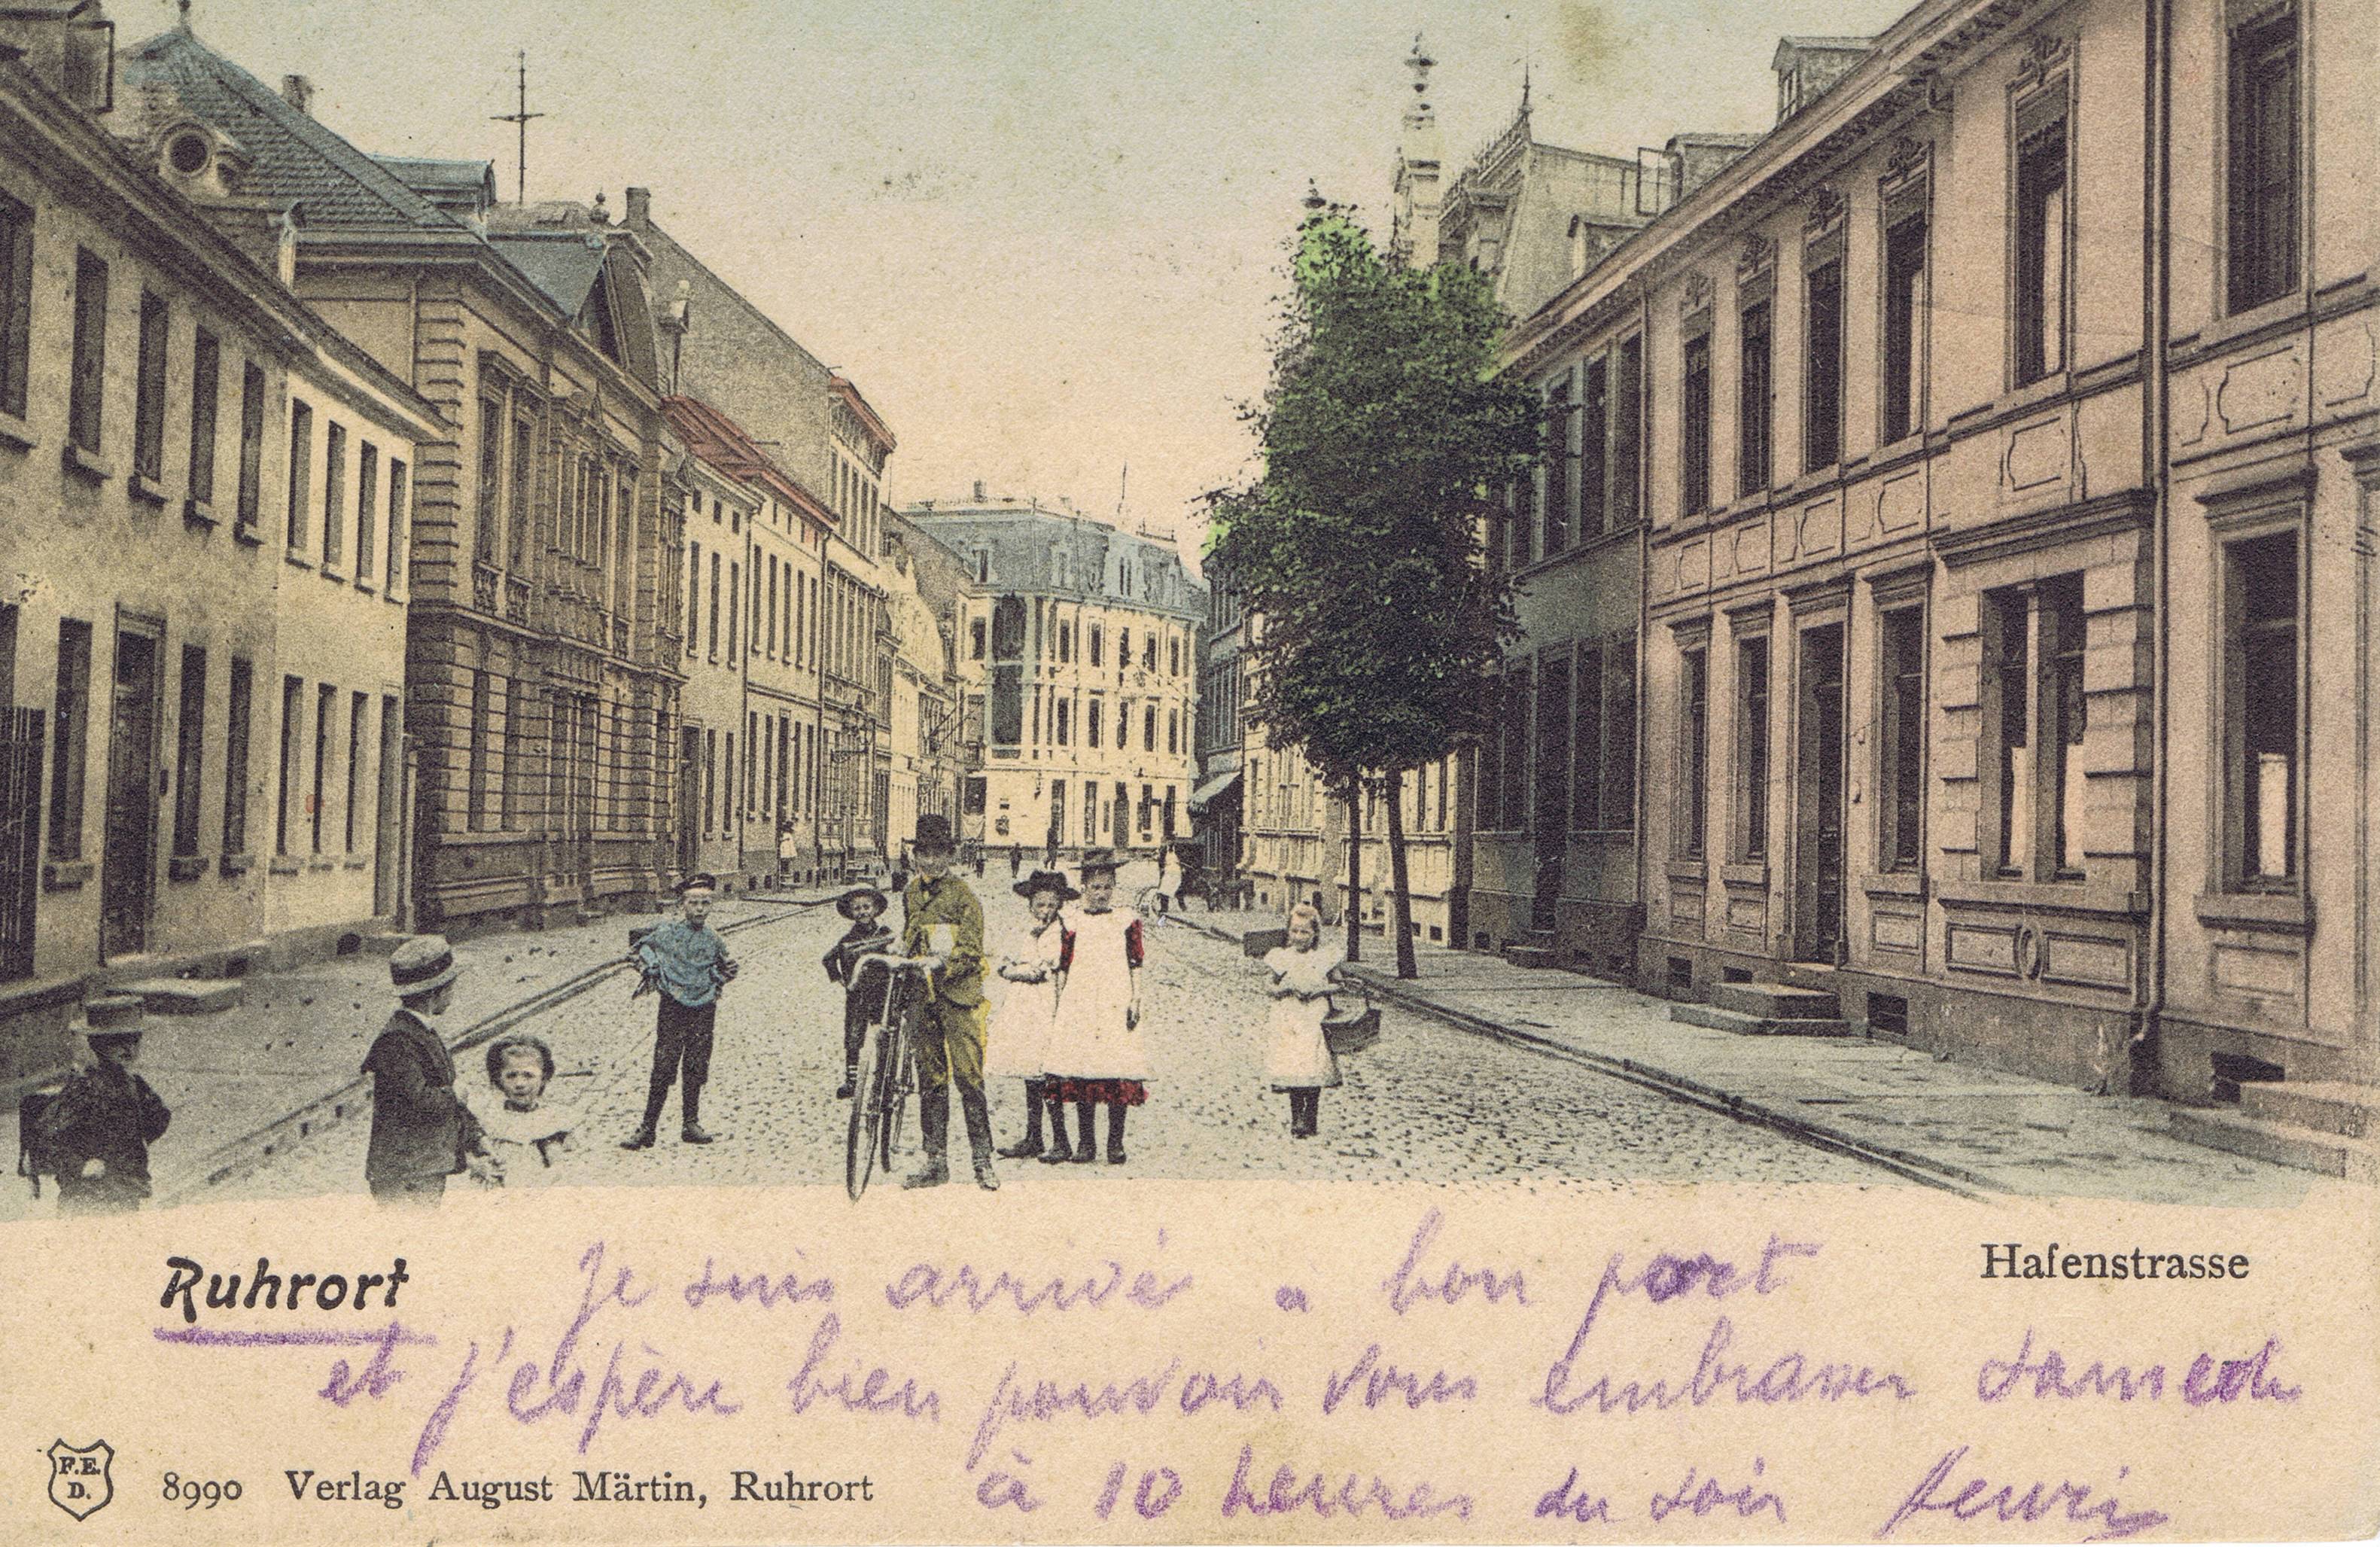 Ruhrort
Hafenstrasse
Je suis arrivé à bon port
et j'espère bien pouvoir vous embrasser samedi
à 10 heures du soir Henri
F.E.
D.
8990 Verlag August Märtin, Ruhrort